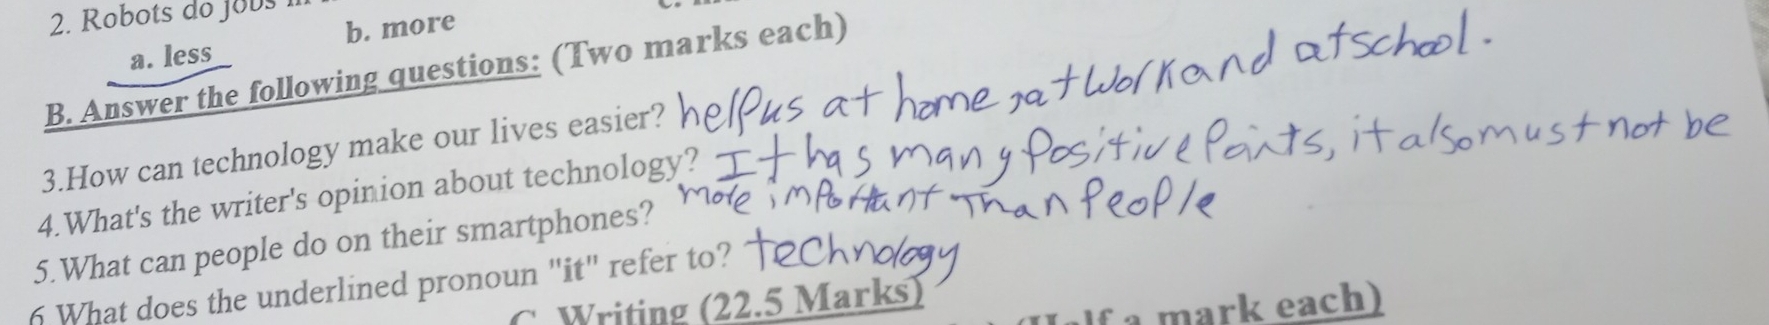 2. Robots do jobs
a. less b. more
B. Answer the following questions: (Two marks each)
3.How can technology make our lives easier? helpus at home, at work and at school.
4.What's the writer's opinion about technology? It has many positive Points, it also must not be
more important Than people
5.What can people do on their smartphones?
6.What does the underlined pronoun "it" refer to? technology
C. Writing (22.5 Marks)
(Half a mark each)